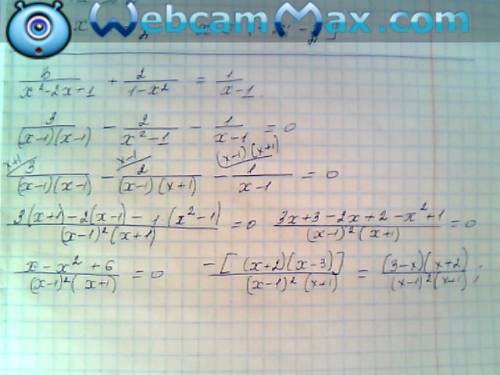 WebcamMax.com
3/(x²-2x-1) + 2/(1-x²) = 1/(x-1)
3/((x-1)(x-1)) - 2/(x²-1) - 1/(x-1) = 0
x+1/ 3/((x-1)(x-1)) - x-1/ 2/((x-1)(x+1)) - (x-1)(x+1)/ 1/(x-1) = 0
(3(x+1)-2(x-1)-1(x²-1))/((x-1)²(x+1)) = 0 (3x+3-2x+2-x²+1)/((x-1)²(x+1)) = 0
(x-x²+6)/((x-1)²(x+1)) = 0 -[(x+2)(x-3)]/((x-1)²(x+1)) = ((3-x)(x+2))/((x-1)²(x+1));